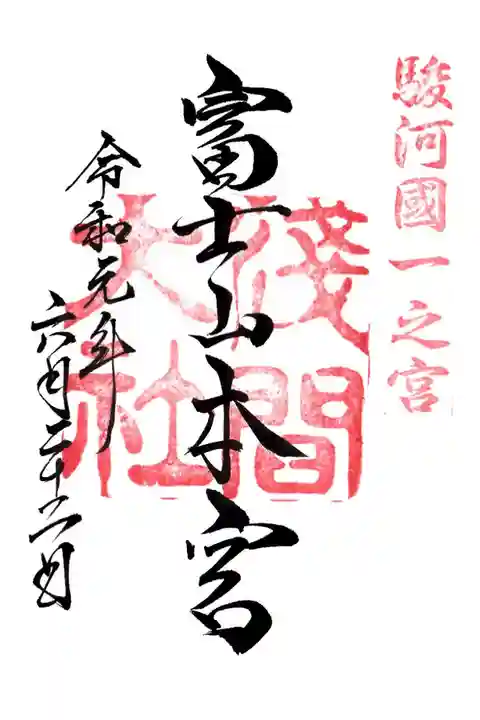 駿河國一之宮
富士山本宮
淺間
大社
令和元年
六月二十六日